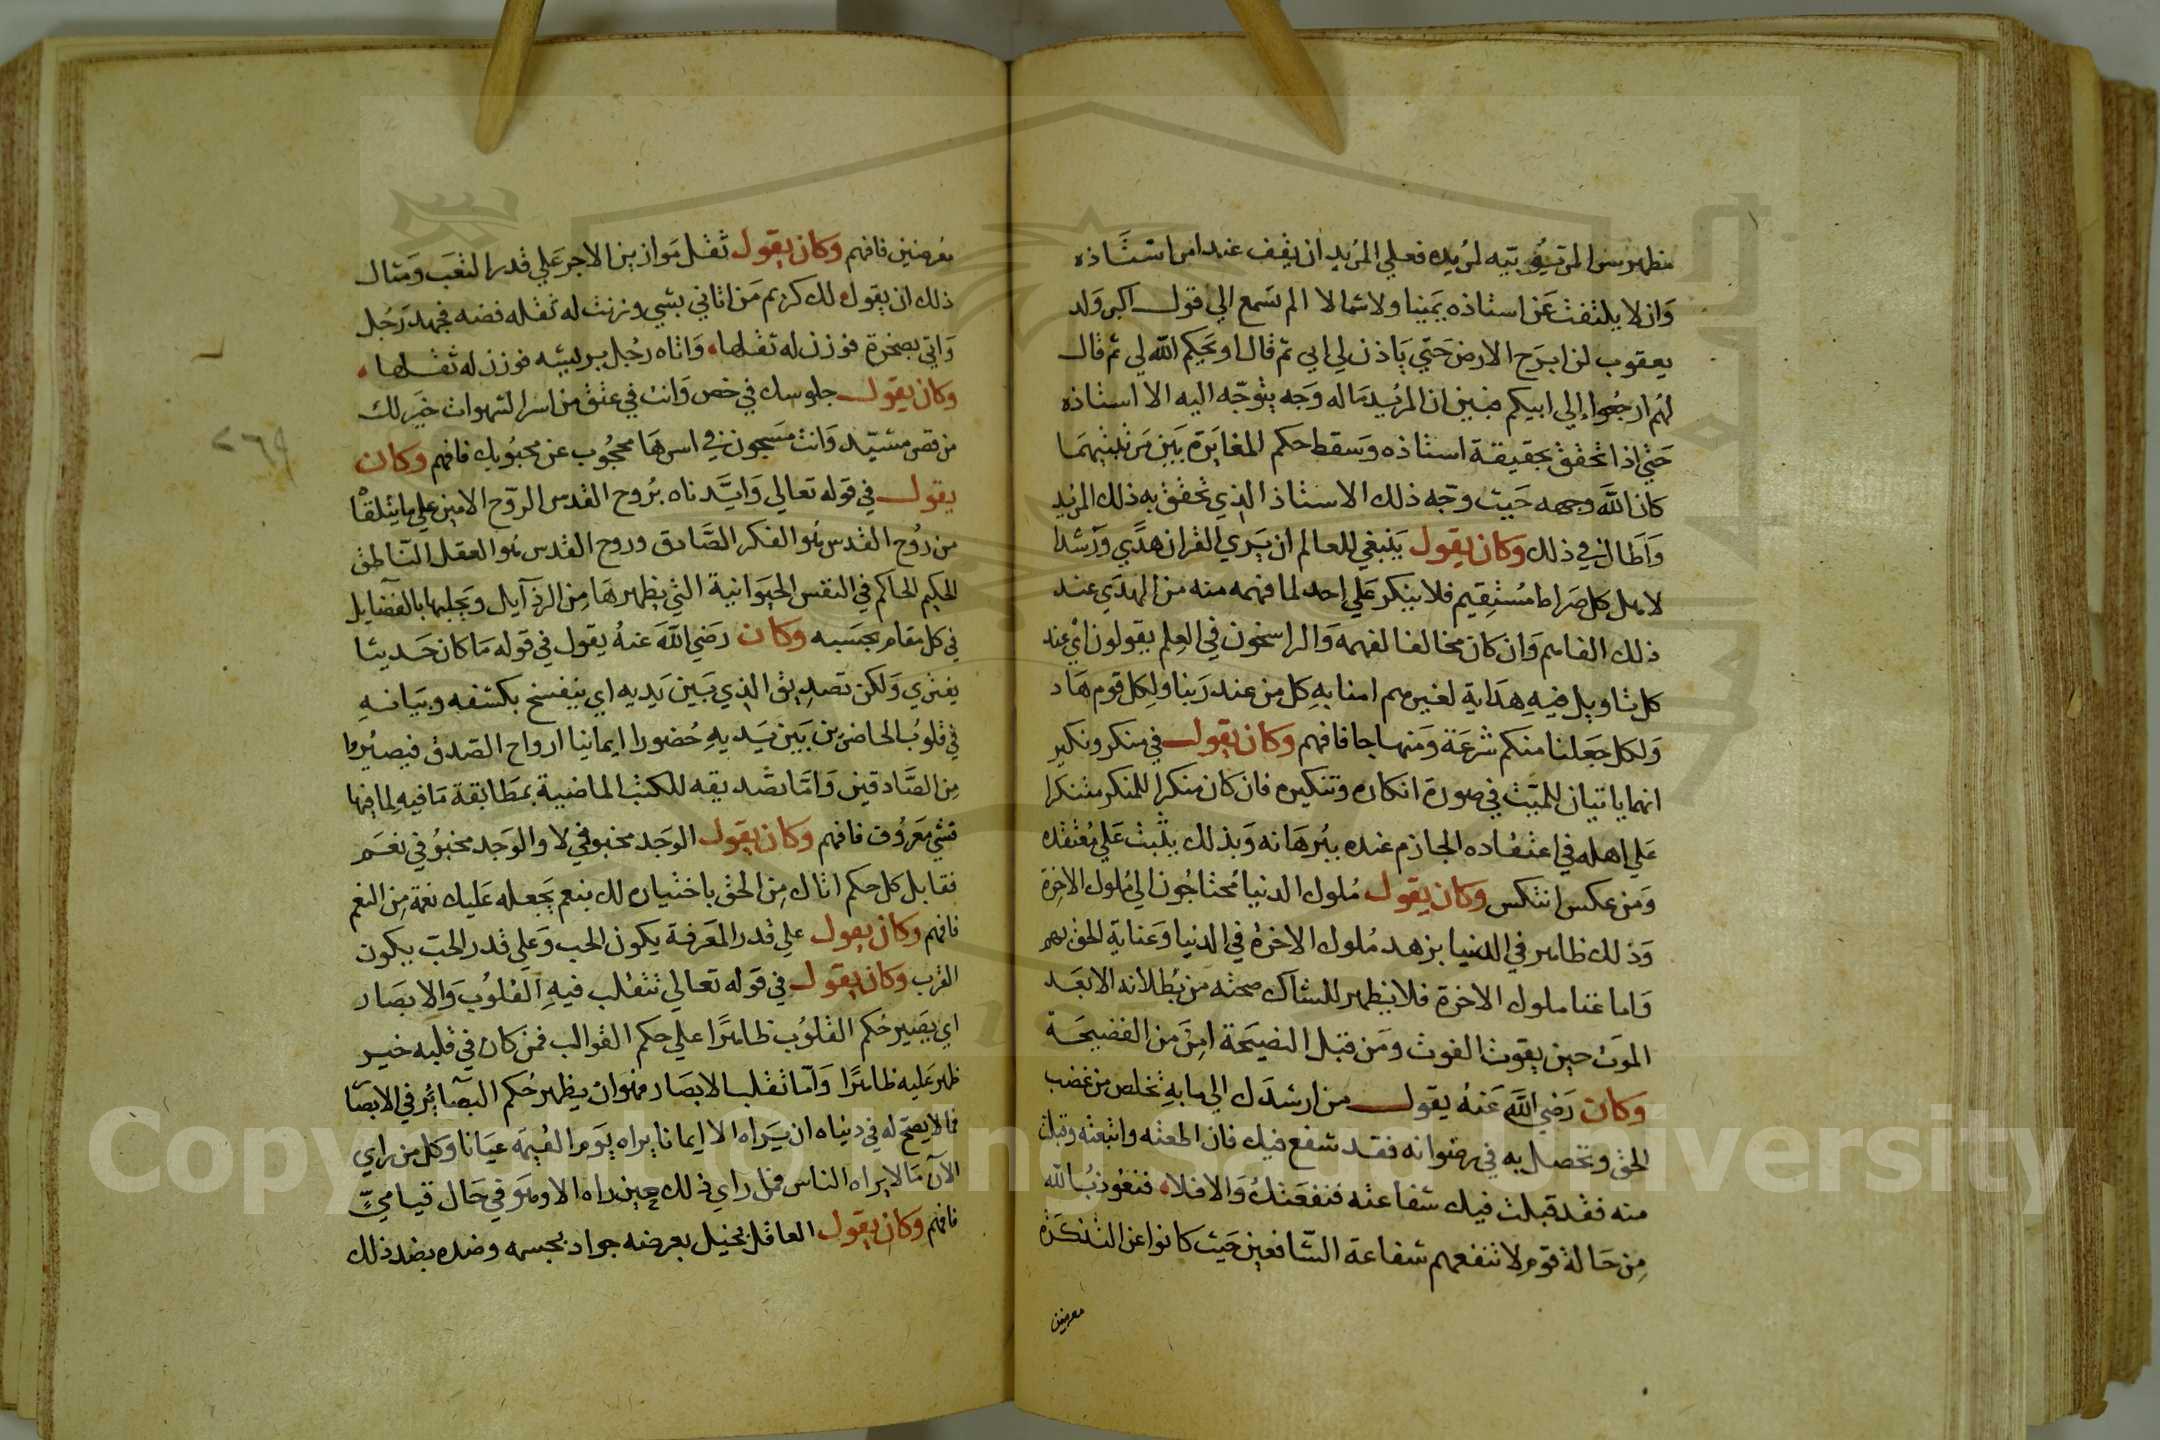 مظهر سر المرتبة ربه لمريده فعلي المريد ان يقف عند امر استاذه
وان لا يلتفت عن استاذه يمينا ولا شمالا الم تسمع الي قول اكبر ولد
يعقوب لن ابرح الارض حتي ياذن لي ابي ثم قال او يحكم الله لي ثم قال
لهم ارجعوا إلي ابيكم فبين ان المريد ماله وجه يتوجه اليه الا استاذه
حتي إذا تحقق بحقيقة استاذه وسقط حكم المغايرة بين مرتبتيهما
كان الله وجهه حيث وجه ذلك الاستاذ الذي تحقق به ذلك المريد
واطال في ذلك وكان يقول ينبغي للعالم ان يري القران هدي ورشدا
لاهل كل صراط مستقيم فلا ينكر علي احد لما فهمه منه من الهدي عند
ذلك الفاهم وان كان مخالفا لفهمه والراسخون في العلم يقولون اي عند
كل تاويل فيه هداية لغيرهم امنا به كل من عند ربنا ولكل قوم هاد
ولكل جعلنا منكم شرعة ومنهاجا فافهم وكان يقول في منكر ونكير
انهما ياتيان للميت في صورة انكاره وتنكيره فان كان منكرا للمنكر متنكرا
علي اهله في اعتقاده الجازم عنده ببرهانه وبذلك يثبت علي معتقده
ومن عكس انتكس وكان يقول ملوك الدنيا محتاجون الي ملوك الاخرة
وذلك ظاهر في الدنيا بزهد ملوك الاخرة في الدنيا وعناية الحق بهم
واما غنا ملوك الاخرة فلا يظهر للشاك صحته من بطلانه الا بعد
الموت حين يفوت الفوت ومن قبل النصيحة امن من الفضيحة
وكان رضي الله عنه يقول من ارشدك الي ما به تخلص من غضب
الحق وتحصل به في رضوانه فقد شفع فيك فان اطعته واتبعته وقبلت
منه فقد قبلت فيك شفاعته فنفعتك والا فلا، فنعوذ بالله
من حالة قوم لا تنفعهم شفاعة الشافعين حيث كانوا عن التذكرة
معرضين
معرضين فافهم وكان يقول ثقل موازين الاجر علي قدر التعب ومثال
ذلك ان يقول لك كريم من اتاني بشي وزنت له ثقله فضه فجهد رجل
واتي بصخرة فوزن له ثقلها، واتاه رجل بريشه فوزن له ثقلها،
وكان يقول جلوسك في خص وانت في عتق من اسر الشهوات خير لك
من قصر مشيد وانت مسجون في اسرها محجوب عن محبوبك فافهم وكان
يقول في قوله تعالي وايدناه بروح القدس الروح الامين علي ما يتلقا
من روح القدس هو الفكر الصادق وروح القدس هو العقل الناطق
الحكيم الحاكم في النفس الحيوانية التي يطهرها من الرذآيل ويحليها بالفضآيل
في كل مقام بحسبه وكان رضي الله عنه يقول في قوله ما كان حديثا
يفتري ولكن تصديق الذي بين يديه اي ينفخ بكشفه وبيانه
في قلوب الحاضرين بين يديه حضورا ايمانيا ارواح الصدق فيصيروا
من الصادقين واما تصديقه للكتب الماضية بمطابقة ما فيه لما فيها
فشي معروف فافهم وكان يقول الوجد مخبو في لا والوجد مخبو في نعم
فقابل كل حكم اتاك من الحق باختياره لك بنعم يجعله عليك نعمة من النعم
فافهم وكان يقول علي قدر المعرفة يكون الحب وعلي قدر الحب يكون
القرب وكان يقول في قوله تعالي تتقلب فيه القلوب والابصار
اي يصير حكم القلوب ظاهرا علي حكم القوالب فمن كان في قلبه خير
ظهر عليه ظاهرا واما تقلب الابصار فهو ان يظهر حكم البصآئر في الابصا
فما لا يصح له في دنياه ان يراه الا ايمانا يراه يوم القيمه عيانا وكل من راي
الآن ما لا يراه الناس فما راي ذلك حين راه الا وهو في حال قيامي
فافهم وكان يقول العاقل بخيل بعرضه جواد بجسمه وضده بضد ذلك
٢٦٩
Copyright © King Saud University